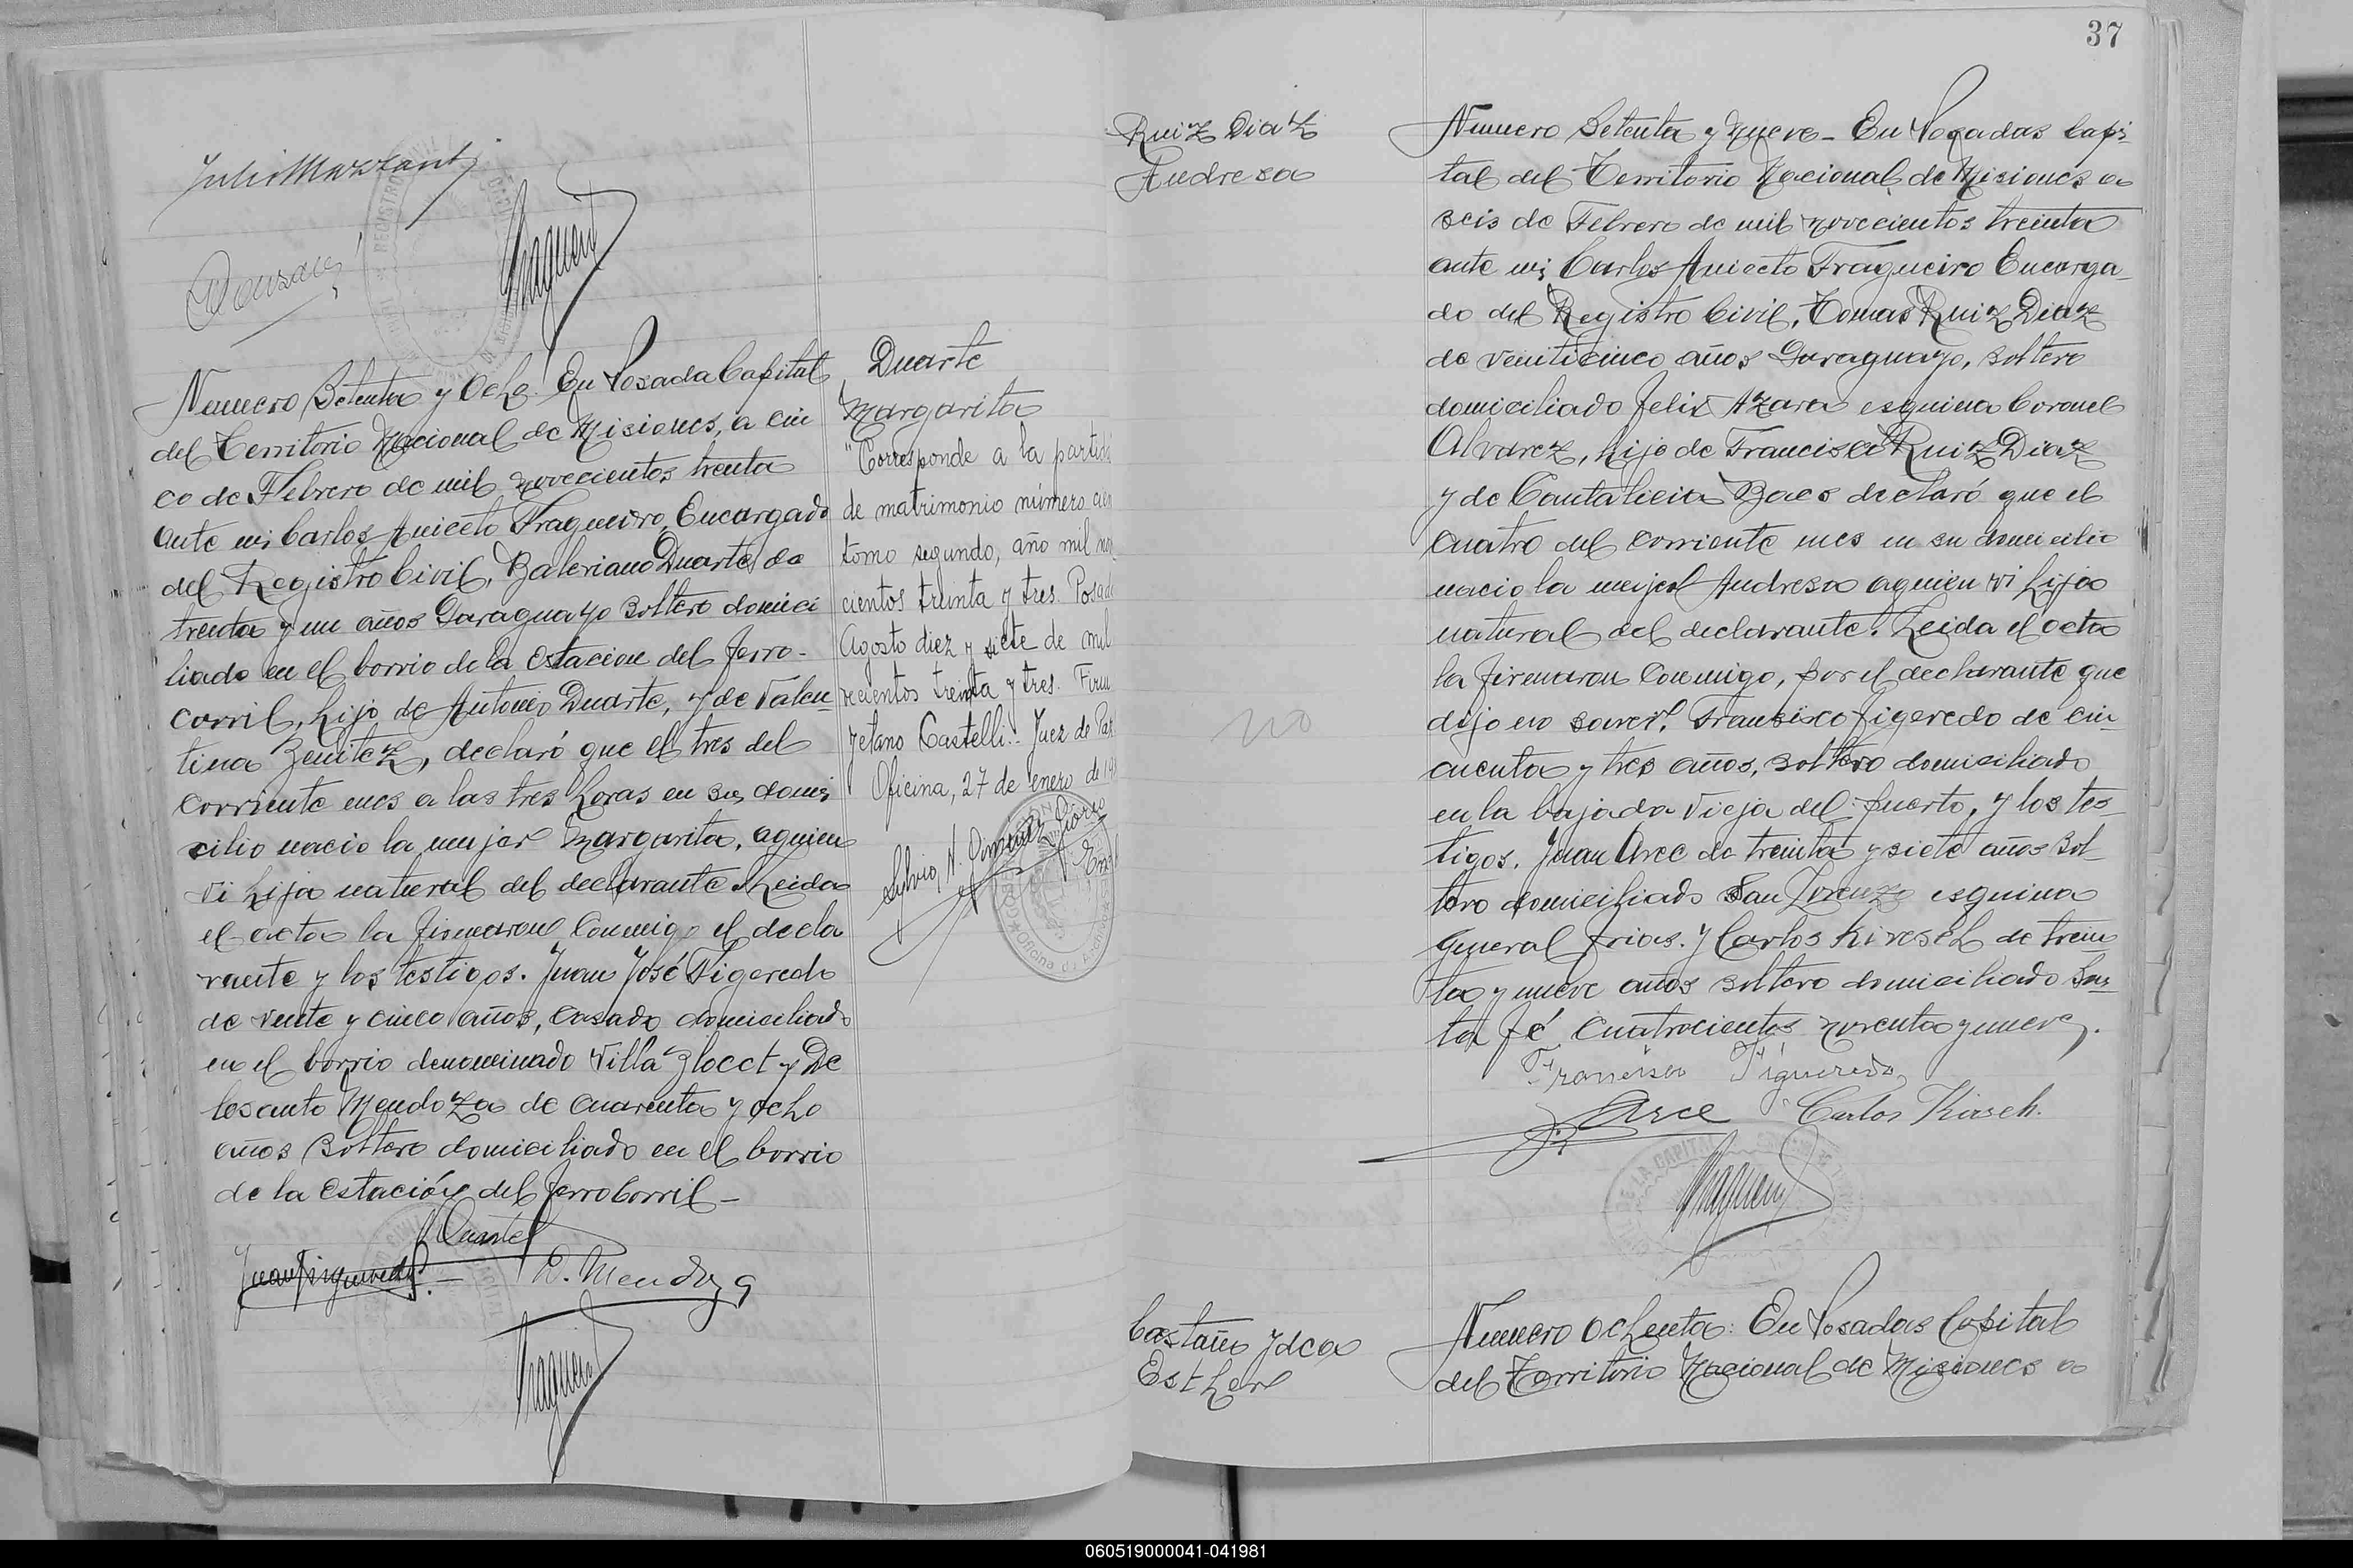 Julio Mazzanti
Numero Setenta y Ocho. En Posada Capital
del Territorio Nacional de Misiones, a cin
co de Febrero de mil novecientos trenta
ante mi Carlos Aniceto Fragueiro, Encargado
del Registro Civil, Baleriano Duarte, de
trenta y un años Paraguayo soltero domici
liado en el barrio de la estacion del ferro-
carril, hijo de Antonio Duarte, y de Valen
tina Benitez, declaró que el tres del
corriente mes a las tres horas en su domi
cilio nacio la mujer Margarita, aquien
vi hija natural del declarante. Leida
el acta la firmaron Conmigo el decla
rante y los testigos. Juan José Figeredo
de vente y cinco años, casado domiciliado
en el barrio denominado Villa Blocet y De
lesanto Mendoza de cuarenta y ocho
años soltero domiciliado en el barrio
de la estación del ferrocarril -
Duarte
Juan Figueredo
D. Mendoza
Duarte
Margarita
"Corresponde a la partida
de matrimonio número cien
tomo segundo, año mil nov
cientos treinta y tres. Posad
Agosto diez y siete de mil
vecientos treinta y tres. Firm
yetano Castelli.- Juez de Paz.
Oficina, 27 de enero de 19
Silvio N. Gonzalez
37
Ruiz Diaz
Andresa
Numero Setenta y nueve - En Posadas Capi-
tal del Territorio Nacional de Misiones a
seis de Febrero de mil novecientos treinta
ante mi Carlos Aniceto Fragueiro Encarga-
do del Registro Civil, Tomas Ruiz Diaz
de veinticinco años Paraguayo, soltero
domiciliado Felix Azara esquina Coronel
Alvarez, hijo de Francisco Ruiz Diaz
y de Cantalicia Baes declaró que el
cuatro del corriente mes en su domicilio
nacio la mujer Andresa aquien vi hija
natural del declarante. Leida el acta
la firmaron Conmigo, por el declarante que
dijo no saver, Fransisco figeredo de cin-
cuenta y tres años, soltero domiciliado
en la bajada vieja del puerto, y los tes-
tigos. Juan Arce de treinta y siete años sol-
tero domiciliado San Lorenzo esquina
General frias. y Carlos Kiresch de trein
ta y nueve años soltero domiciliado San-
ta fé cuatrocientos noventa y nueve.
Francisco Figueredo
Arce Carlos Kirsch.
no
Castaño Ydea
Esther
Numero Ochenta: En Posadas Capital
del Territorio Nacional de Misiones a
060519000041-041981